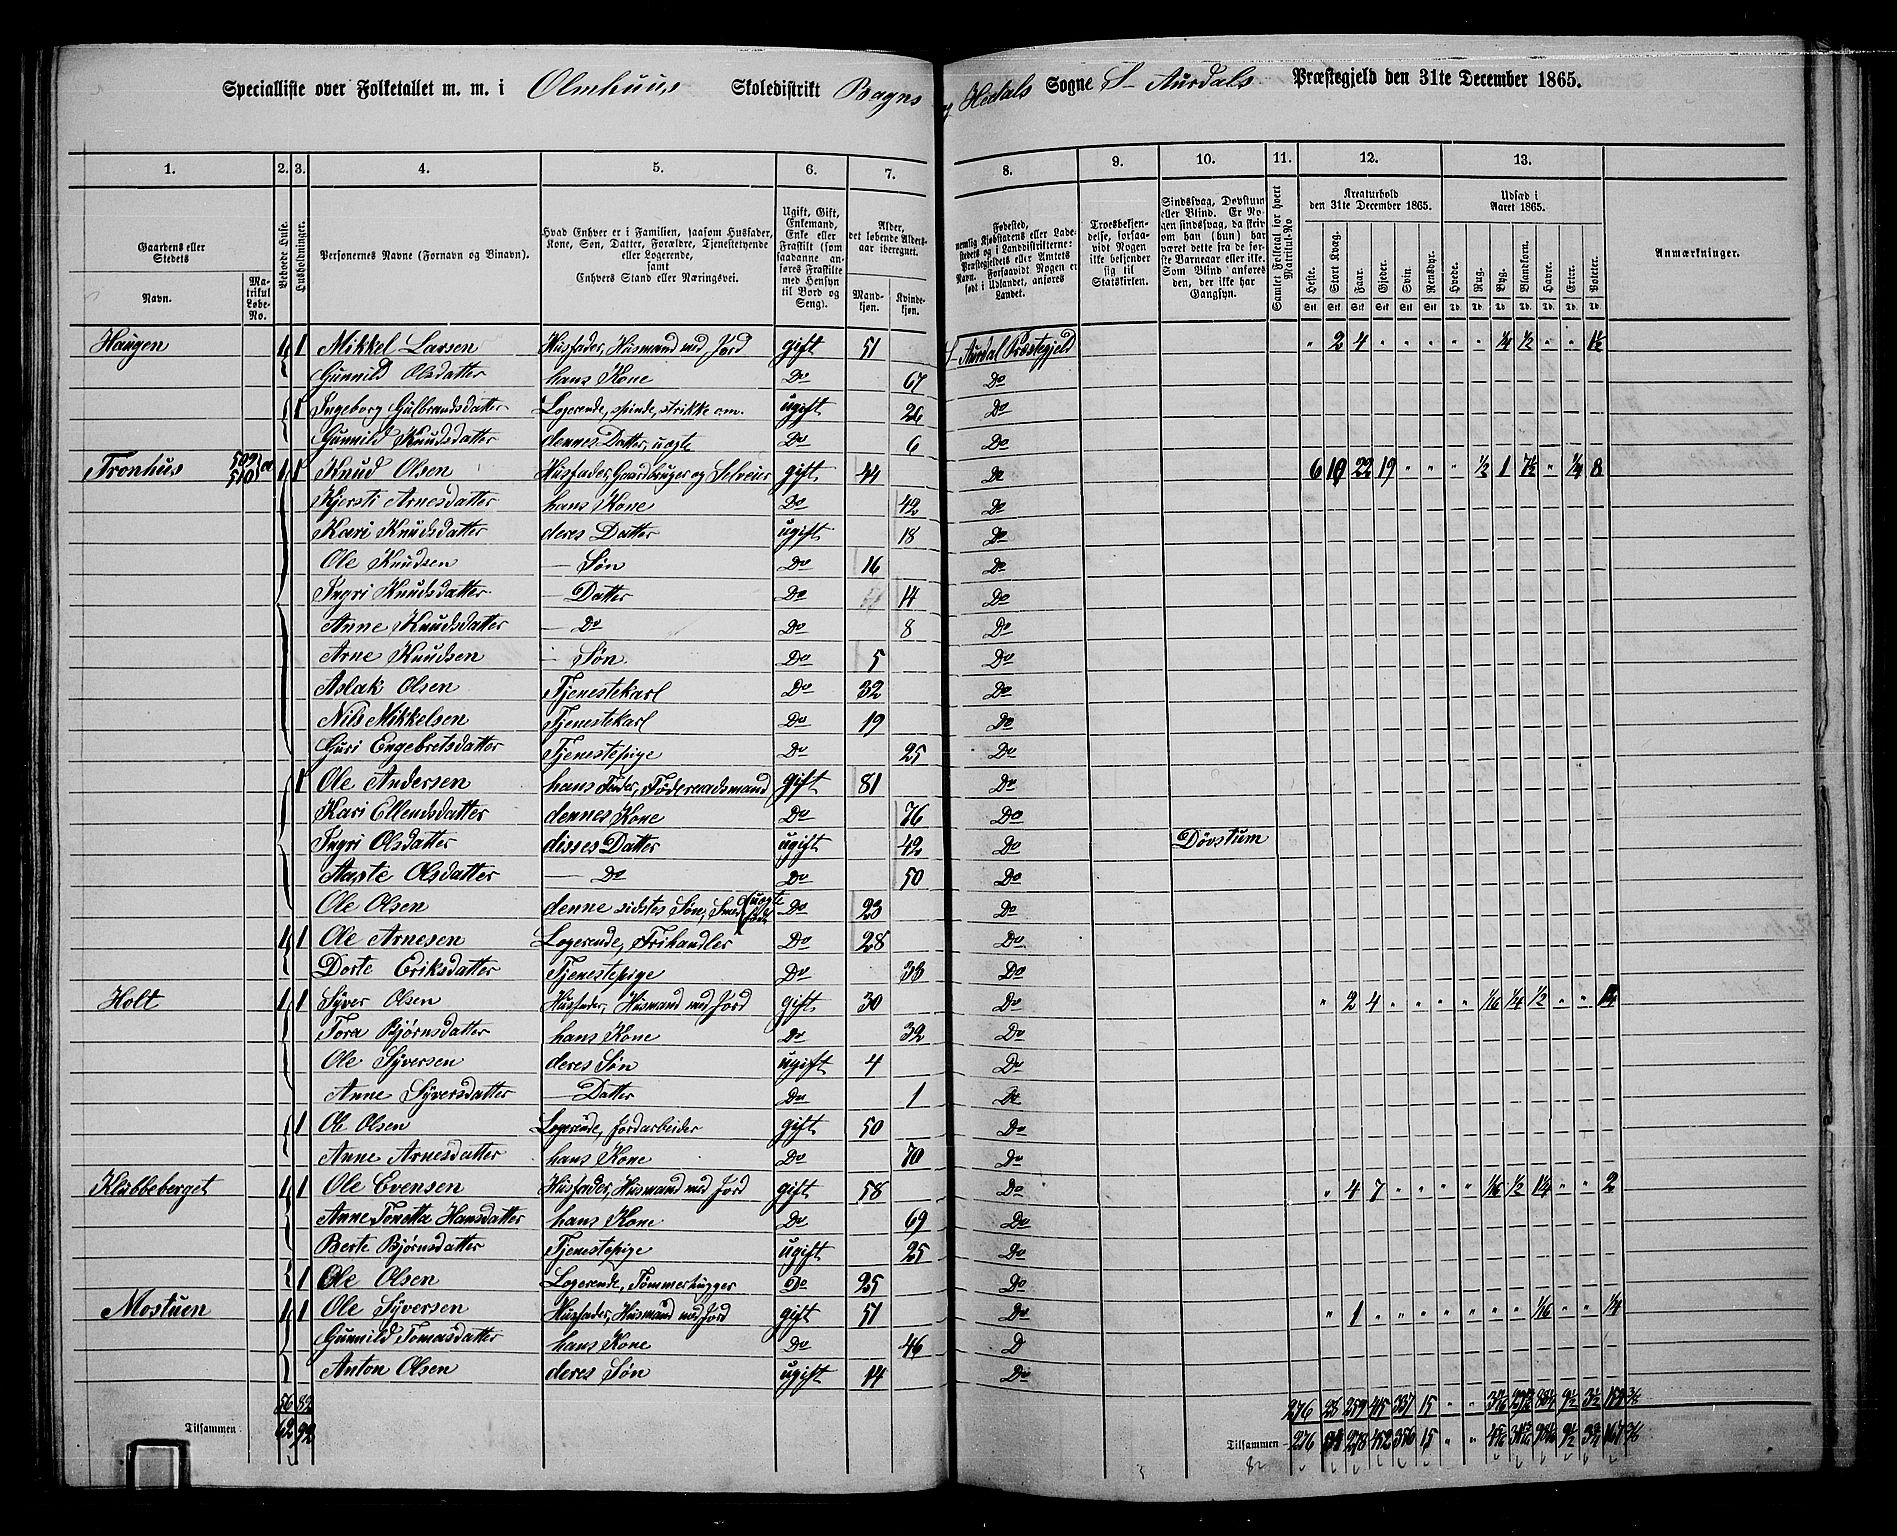 Specialliste over Folketallet m. m. i Olmhuus Skoledistrikt Bagns og Hedals Sogne S. Aurdals Præstegjeld den 31te December 1865.
1. 2. 3. 4. 5. 6. 7. 8. 9. 10. 11. 12. 13.
Gaardens eller Stedets
Navn. Matrikul Løbe-No.
Beboede Huse.
Husholdninger.
Personernes Navne (Fornavn og Binavn).
Hvad Enhver er i Familien, saasom Husfader, Kone, Søn, Datter, Forældre, Tjenestetyende eller Logerende, samt Enhvers Stand eller Næringsvei.
Ugift, Gift, Enkemand, Enke eller Fraskilt (som saadanne anføres Fraskilte med Hensyn til Bord og Seng).
Alder, det løbende Alders-aar iberegnet.
Mandkjøn. Kvindekjøn.
Fødested, nemlig Kjøbstadens eller Ladestedets og i Landdistrikterne: Præstegjeldets eller Amtets Navn. Forsaavidt Nogen er født i Udlandet, anføres Landet.
Troesbekjendelse, forsaavidt Nogen ikke bekjender sig til Statskirken.
Sindssvag, Døvstum eller Blind. Er Nogen sindssvag, da skrives om han (hun) har været dette fra de første Barneaar eller ikke. Som Blind anføres den, der ikke har Gangsyn.
Samlet Folketal for hvert Matrikul-No
Kreaturhold den 31te December 1865.
Heste. Stort Kvæg. Faar. Gjeder. Svin. Rensdyr.
Udsæd i Aaret 1865.
Hvede. Rug. Byg. Blandkorn. Havre. Erter. Poteter.
Anmærkninger.
Haugen 1 1 Mikkel Larsen Husfader, Husmand med Jord gift 51 S. Aurdal Præstegjeld " 2 4 " " " " " 1/4 1/2 " " 1½
Gunnild Olsdatter hans Kone Do 67 Do
1 Ingeborg Gulbrandsdatter Logerende, spinde, strikke om. ugift 26 Do
Gunnild Knudsdatter dennes Datter, uægte Do 6 Do
Tronhus 509 510 1 1 Knud Olsen Husfader, Gaardbruger og Selveier gift 44 Do 6 10 22 19 " " " ½ 1 7½ " ¼ 8
Kjersti Arnesdatter hans Kone Do 42 Do
Kari Knudsdatter deres Datter ugift 18 Do
Ole Knudsen — Søn Do 16 Do
Ingri Knudsdatter — Datter Do 14 Do
Anne Knudsdatter — Do Do 8 Do
Arne Knudsen — Søn Do 5 Do
Aslak Olsen Tjenestekarl Do 32 Do
Nils Mikkelsen Tjenestekarl Do 19 Do
Guri Engebretsdatter Tjenestepige Do 25 Do
1 Ole Andersen hans Fader, Føderaadsmand gift 81 Do
Kari Ellendsdatter dennes Kone Do 76 Do
Ingri Olsdatter disses Datter ugift 42 Do Døvstum
Aaste Olsdatter — Do Do 50 Do
Ole Olsen denne sidstes Søn, uægte Do 23 Do
1 1 Ole Arnesen Logerende, Frihandler Do 28 Do
Dorte Eriksdatter Tjenestepige Do 33 Do
Holt 1 1 Syver Olsen Husfader, Husmand med Jord gift 30 Do " 2 4 " " " " 1/16 1/4 1/2 " " 1¼
Tora Bjørnsdatter hans Kone Do 32 Do
Ole Syversen deres Søn ugift 4 Do
Anne Syversdatter — Datter Do 1 Do
1 1 Ole Olsen Logerende, Jordarbeider gift 50 Do
Anne Arnesdatter hans Kone Do 70 Do
Klubbeberget 1 1 Ole Evensen Husfader, Husmand med Jord gift 58 Do " 4 7 " " " " 1/16 1/2 1¼ " " 2
Anne Tonetta Hansdatter hans Kone Do 69 Do
Berte Bjørnsdatter Tjenestepige ugift 25 Do
1 Ole Olsen Logerende, Tømmerhugger Do 25 Do
Mostuen 1 1 Ole Syversen Husfader, Husmand med Jord gift 51 Do " 1 " " " " " " " 1/16 " " 1/4
Gunnild Tomasdatter hans Kone Do 46 D
Anton Olsen deres Søn ugift 14 Do
56 82 276 28 259 415 337 15
Tilsammen 62 92 Tilsammen 276 278 452 356 15